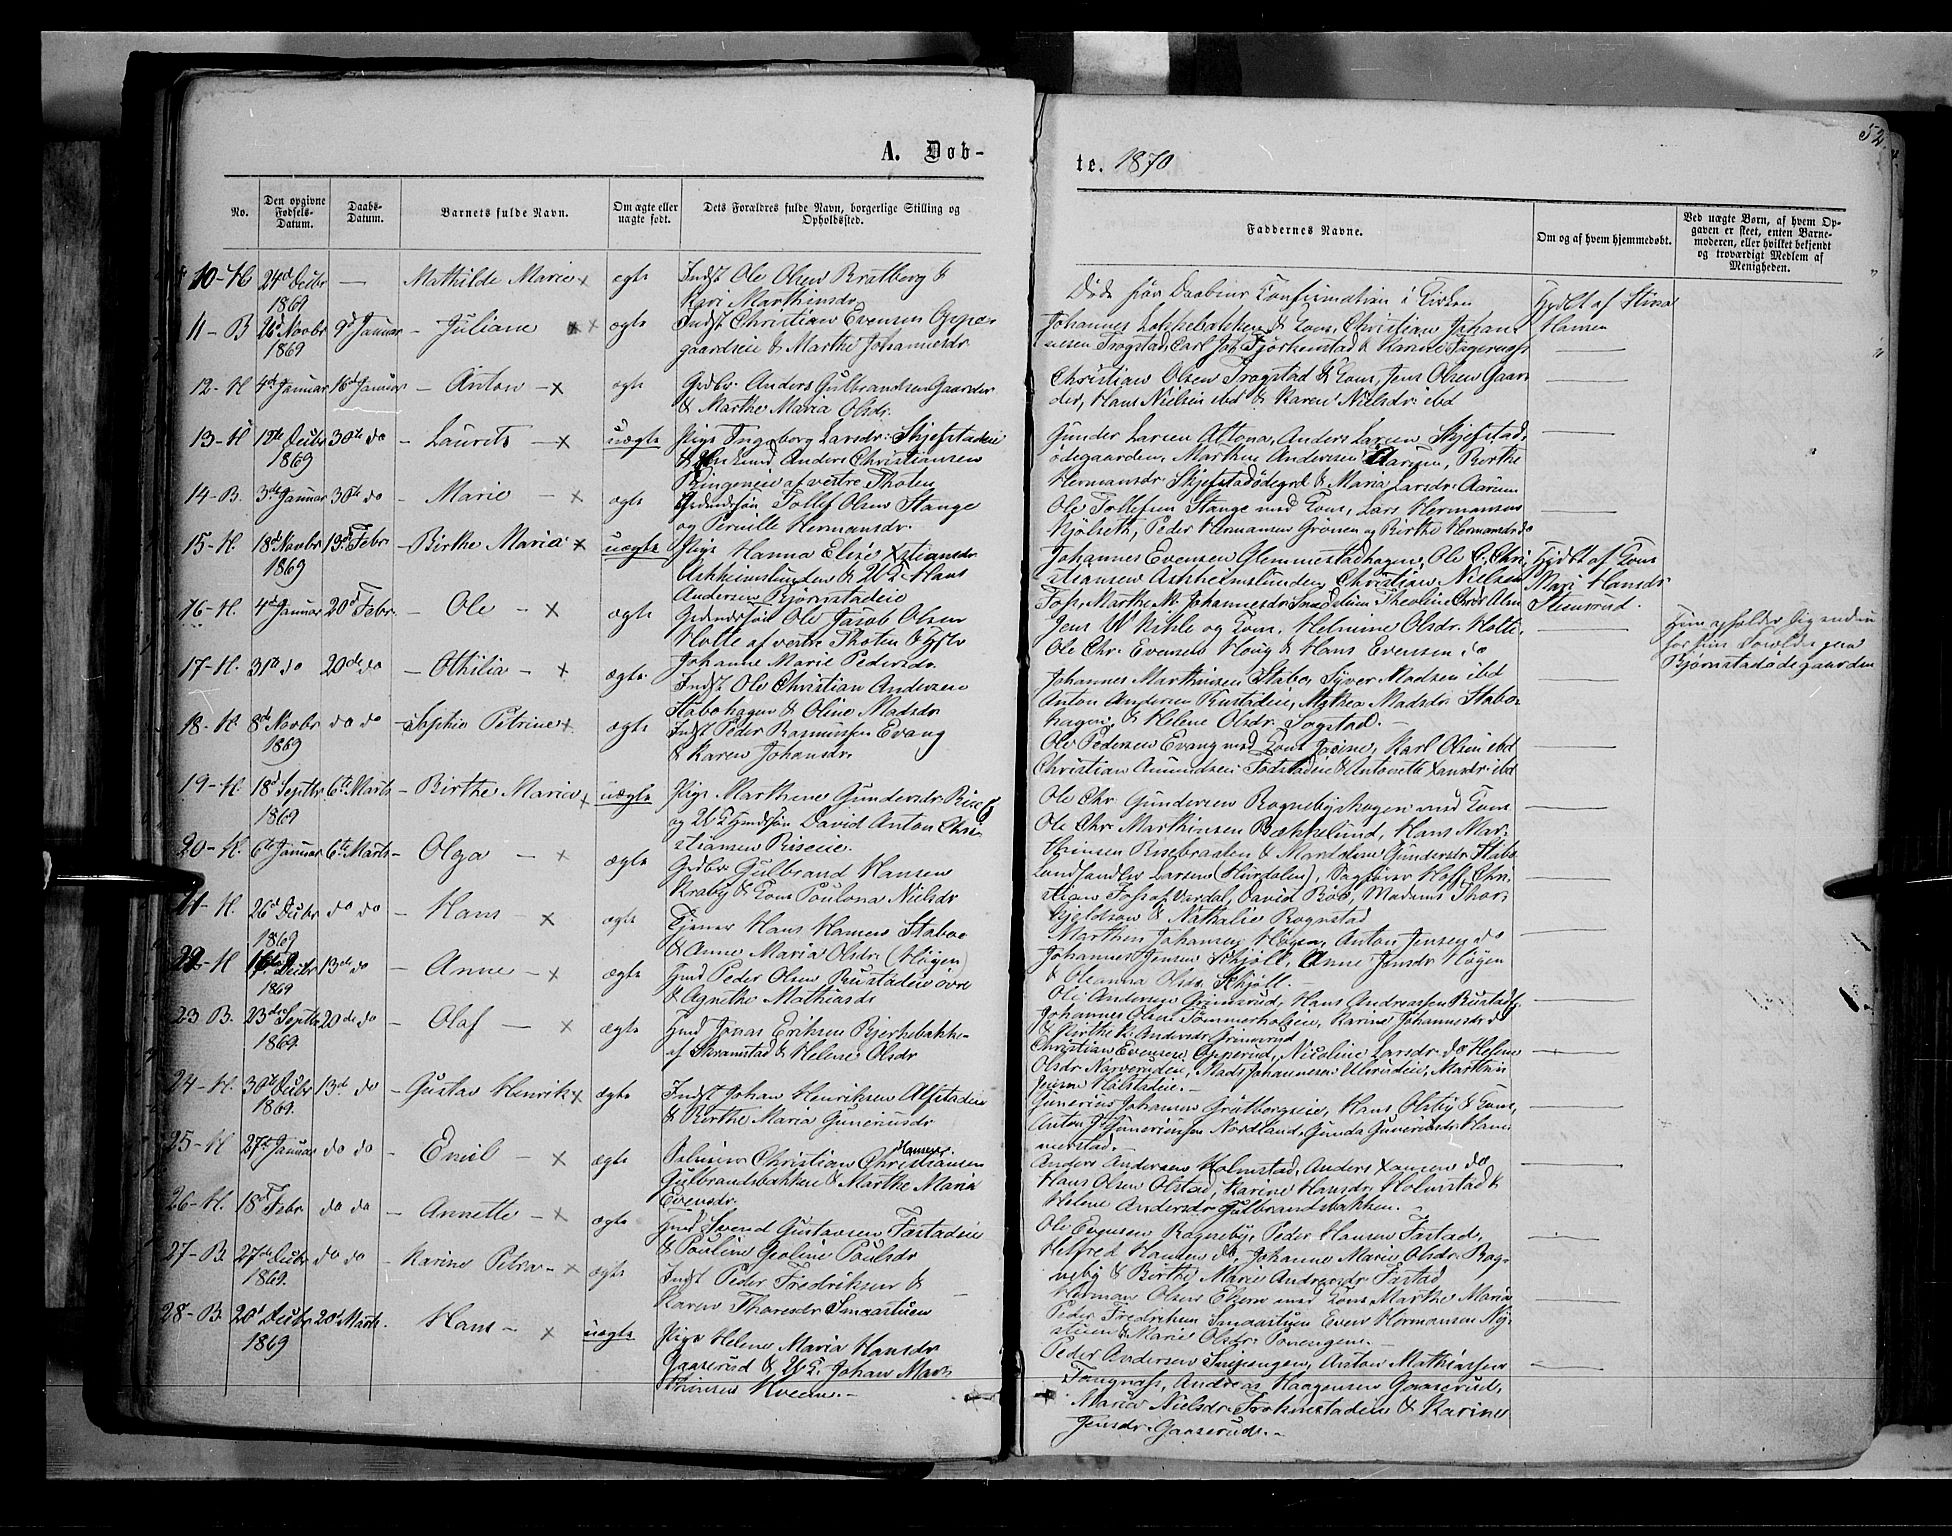 A. Døb-
te. 1870
52
No.
Den opgivne Fødsels-Datum.
Daabs-Datum.
Barnets fulde Navn.
Om ægte eller uægte født.
Dets Forældres fulde Navn, borgerlige Stilling og Opholdssted.
Faddernes Navne.
Om og af hvem hjemmedøbt.
Ved uægte Børn, af hvem Opgaven er skeet, enten Barnemoderen, eller hvilket bekjendt og troværdigt Medlem af Menigheden.
10-H 24d Decbr 1869 — Mathilde Marie x ægte Indst Ole Olsen Bratberg &
Kari Marthinsdr
Døde før Daabens Confirmation i Kirken
Hansen
11-B 26d Novbr 1869 9d Januar - Juliane x ægte Indst Christian Evensen
gaardseie & Marthe Johannesdr
12-H 4d Januar 16d Januar - Anton - x ægte Grdbr. Anders Gulbrandsen Gaarder
& Marthe Maria Olsdr.
Christian Olsen Trogstad & Kone, Jens Olsen Gaar
der, Hans Nielsen ibd & Karen Nielsdr. ibd
13-H 13de Decbr 1869 30te do - Laurits - x uægte Pige Ingeborg Larsdr. Skjefstadeie
& Anders Christiansen
Ringeneie af vestre Thoten
Gunder Larsen Altona, Anders Larsen Skjefstad
ødegaarden, Marthin Andersen Aarum, Birthe
Hermansdr Skjefstadødegrd & Maria Larsdr. Aarum
14-B. 3de Januar 30te do - Marie - x ægte Tollef Olsen Stange
og Pernille Hermansdr.
Ole Tollefsen Stange med Kone, Lars Hermansen
Kjølseth, Peder Hermansen Grønen og Birthe Hermansdr do
15-H. 18d Novbr 1869 13d Febr - Birthe Maria x uægte Pige Hanna Elise Xstiansdr
Askheimslunden & U.K. Hans
Andersen Bjørnstadeie
Johannes Evensen Glemmestadhagen, Ole C. Chri
stiansen Askheimslunden, Christian Nielsen
Fos, Marthe M. Johannesdr
Hjdbt af Kone
Mari Hansdr
Steinsrud.
16-H. 4d Januar 20d Febr. - Ole - x ægte Ole Jacob Olsen
Holte af vestre Thoten & Hstr
Johanne Marie Pedersdr
Jens W Kihle og Kone, Helmine Olsdr. Holte,
Ole Chr. Evensen Houg & Hans Evensen do
Hun opholder sig endnu
Bjørnstadødegaarden
17-H. 31te do 20de do - Othilia - x ægte Indst Ole Christian Andersen
Stabohagen & Oline Madsdr
Johannes Marthinsen Stabo, Syver Madsen ibd
Anton Andersen Rustadeie, Mathea Madsdr Stabo
hagen & Helene Olsdr. Sogstad. -
18-H 8d Novbr 1869 do do - Sophie Petrine x ægte Indst Peder Rasmussen Evang
& Karen Johansdr.
Ole Pedersen Evang med Kone Jacine, Karl Olsen ibd
Christian Amundsen Fodstadeie & Antonette Xansdr. ibd
19-H. 18d Septbr 1869 6te Marts - Birthe Maria x uægte Pige Marthine Gundersdr. Rise
og U.K. David Anton Chri
stiansen Riseeie.
Ole Chr. Gundersen Rognebyhagen med Kone
Ole Chr. Marthinsen Bækkelund, Hans Mar-
thinsen Risebraaten & Gundersdr. Stabo
20-H. 6te Januar 6te Marts - Olga - x ægte Grdbr Gulbrand Hansen
Kraby & Kone Paulona Nielsdr
Landhandler Larsen (Hurdalen), Sagfører Hoff, Chri
stian Fos af Vardal, David Bøe, Madame Thor
kjeldsen & Nathalie Rognstad
21-H. 26d Decbr 1869 do do - Hans - x ægte Tjener Hans Hansen Staboe
& Anne Maria Olsdr. (Høgen)
Marthin Johansen Høgen, Anton Jensen do
Johannes Jensen Skjøll, Anne Jensdr Høgen
& Oleanna Olsdr Skjøll.
22-H Decbr 1869 13de do - Anne - x ægte Hmd Peder Olsen Rustadeie øvre
& Agnethe Mathiasdr
Ole Andersen Grimsrud, Hans Andreassen Rustade
Johannes Olsen Tømmerholeie, Karine Johannesdr do
& Birthe K. Andersdr Grimsrud
23 B. 23de Septbr 1869. 20de do - Olaf - x ægte Hmd Jonas Eriksen Bjerkebakke
af Skramstad & Helene Olsdr
Christian Evensen, Nicoline Larsdr. do Helene
Olsdr Narveruden, Mads Johannesen Ulsrudeie, Marthin
Jensen Hølstadeie. -
24-H. 30te Decbr 1869. 13d. do - Gustav Henrik x ægte Indst Johan Henriksen Alfstadeie
& Birthe Maria Guneriusdr
Gunerius Johansen Grøtbergseie, Hans Olsby & Kone,
Anton J. Guneriussen Nordland, Gunda Guneriusdr. Ham
merstad.
25-H 27de Januar do do - Emil - x ægte Christian Christiansen Hammer.
Gulbrandsbakken & Marthe Maria
Evensdr.
Anders Andersen Holmstad, Anders Xansen do
Hans Olsen Olstad, Karine Hansdr. Holmstad &
Helene Andersdr. Gulbrandsbakken.
26-H. 18d Febr do do - Annette - x ægte Hmd Svend Gustavsen Fastadeie
& Pauline Geoline Paulsdr
Ole Evensen Rogneby, Peder Hansen Fastad,
Helfred Hansen do, Johanne Marie Olsdr. Rog-
neby & Birthe Marie Andreasdr Fastad
27-B 27de Decbr 1869. do do - Karine Petra - x ægte Indst Peder Fredriksen &
Karen Tharesdr Smaastuen
Herman Olsen Ekern med Kone Marthe Maria
Peder Fredriksen Smaastuen Even Hermansen Ny-
stuen & Marie Olsdr.
28-B. 20d Decbr 1869 20d Marts. Hans - x uægte Pige Helene Maria Hansdr
Gaaserud & U.K. Johan Mar
thinsen Kveem. -
Peder Andersen, Anton Mathiassen
Fongnæss, Andreas Haagensen Gaaserud,
Maria Nielsdr. & Karine
Jensdr. Gaaserud. -